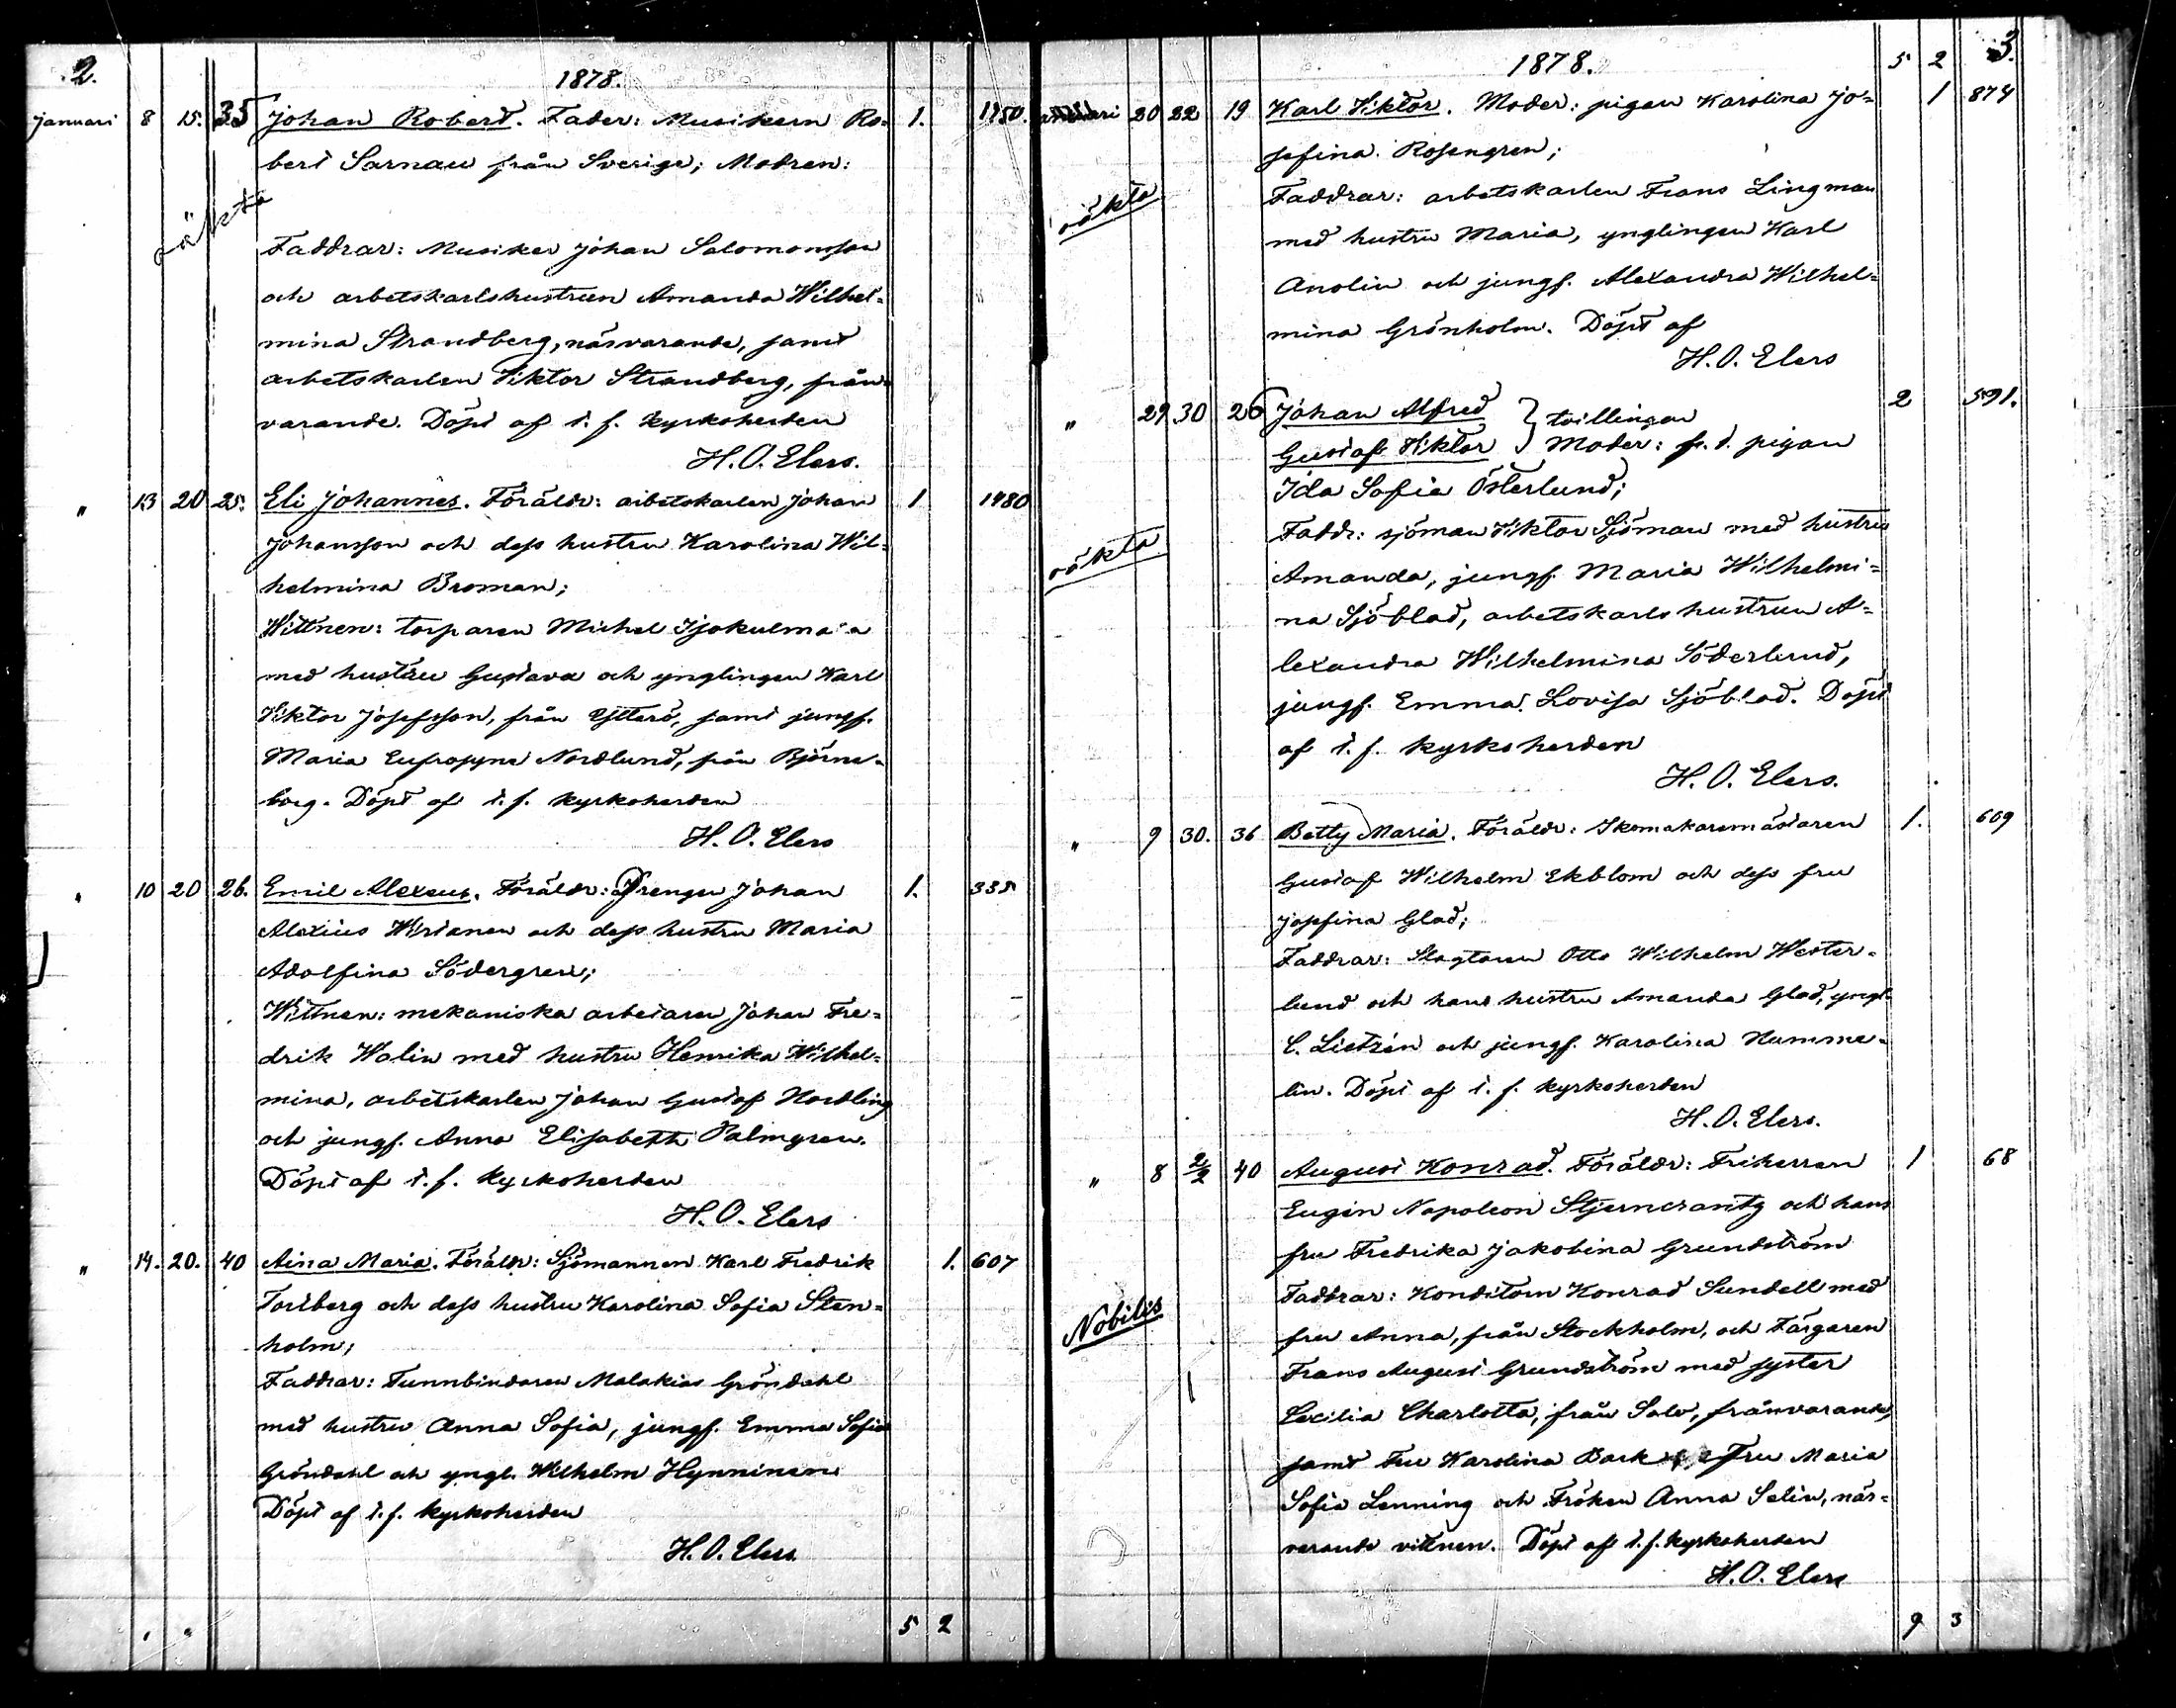 2.
1878.
Januari 8 15. 35 Johan Robert. Fader: Musikern Ro= 1. 1750.
bert Sarnau från Sverige; Modren:
oäkta
Faddrar: Musiker Johan Salomonsson
och arbetskarlshustrun Amanda Wilhel=
mina Strandberg, närvarande, samt
arbetskarlen Viktor Strandberg, från=
varande. Döpt af t. f. kyrkoherden
H. O. Elers.
" 13 20 25. Eli Johannes. Föräldr: arbetskarlen Johan 1 1480
Johansson och dess hustru Karolina Wil=
helmina Broman;
Wittnen: torparen Michel
med hustru Gustava och ynglingen Karl
Viktor Josefsson, från Ytterö, samt jungf.
Maria Eufrosyne Nordlund, från Björne=
borg. Döpt af t. f. kyrkoherden
H. O. Elers
" 10 20 26. Emil Alexius. Föräldr: Drengen Johan 1. 335
Alexius Wirtanen och dess hustru Maria
Adolfina Södergren;
Wittnen: mekaniska arbetaren Johan Fre=
drik Walin med hustru Henrika Wilhel=
mina, arbetskarlen Johan Gustaf Nordling
och jungf. Anna Elisabeth Palmgren.
Döpt af t. f. kyrkoherden
H. O. Elers
" 14. 20. 40 Aina Maria. Föräldr: Sjömannen Karl Fredrik 1. 607
Forsberg och dess hustru Karolina Sofia Sten=
holm;
Faddrar: Tunnbindaren Malakias Gröndahl
med hustru Anna Sofia, jungf. Emma Sofia
Gröndahl och yngl. Wilhelm Hynninen
Döpt af t. f. kyrkoherden
H. O. Elers
5 2
1878. 5 2 3.
Januari 20 22 19 Karl Viktor. Moder: pigan Karolina Jo= 1 874
sefina Rosengren;
oäkta
Faddrar: arbetskarlen Frans Lingman
med hustru Maria, ynglingen Karl
Anolin och jungf. Alexandra Wilhel=
mina Grönholm. Döpt af
H. O. Elers
" 29 30 26 Johan Alfred } tvillingar 2 591.
Gustaf Viktor } Moder: f. d. pigan
Ida Sofia Österlund;
oäkta
Faddr: sjöman Viktor Sjöman med hustru
Amanda, jungf. Maria Wilhelmi=
na Sjöblad, arbetskarls hustrun A=
lexandra Wilhelmina Söderlund,
jungf. Emma Lovisa Sjöblad. Döpt
af t. f. kyrkoherden
H. O. Elers.
" 9 30. 36 Betty Maria. Föräldr: Skomakaremästaren 1. 609
Gustaf Wilhelm Ekblom och dess fru
Josefina Glad;
Faddrar: Slagtaren Otto Wilhelm Wester=
lund och hans hustru Amanda Glad, yngl.
C. Lietzén och jungf. Karolina Humme=
lin. Döpt af t. f. kyrkoherden
H. O. Elers.
" 8 2/2 40 August Konrad. Föräldr: Friherren 1 68
Eugén Napoleon Stjerncrantz och hans
fru Fredrika Jakobina Grundström
Nobilis
Faddrar: Konditorn Konrad Sundell med
fru Anna, från Stockholm, och Färgaren
Frans August Grundström med syster
Cecilia Charlotta, från Salo, frånvarande,
samt Fru Karolina Bark Fru Maria
Sofia Lenning och Fröken Anna Selin, när=
varande vittnen. Döpt af t. f. kyrkoherden
H. O. Elers
9 3